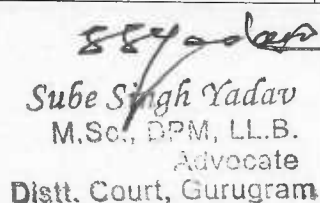 SSYadav
Sube Singh Yadav
M.Sc., DPM, LL.B.
Advocate
Distt. Court, Gurugram